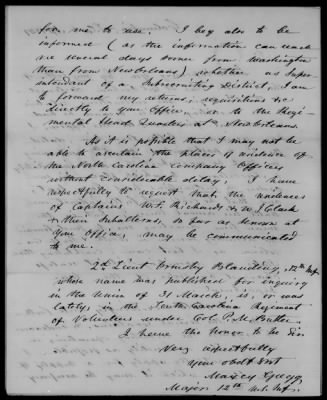 for me to use. I beg also to be
informed (as the information can reach
me several days sooner from Washington
than from New Orleans) whether as Super-
intendent of a Subrecruiting District, I am
to forward my returns, requisitions &c
directly to your Office, or to the Regi-
mental Head Quarters at New Orleans.
As it is possible that I may not be
able to ascertain the places of residence of
the North Carolina company Officers
without considerable delay, I have
respectfully to request that the residences
of Captains W. E. Richards & W. J. Clark
& their Subalterns, so far as known at
your Office, may be communicated
to me.
2d Lieut Ormsby Blanding, 12th Inf.
whose name was published for inquiry
in the Union of 31 March, is, or was
lately, in the South Carolina Regiment
of Volunteers under Col P. M. Butler.
I have the honor to be Sir
Very respectfully
Your obdt Svt
Maxcy Gregg
Major 12th U.S. Inf.